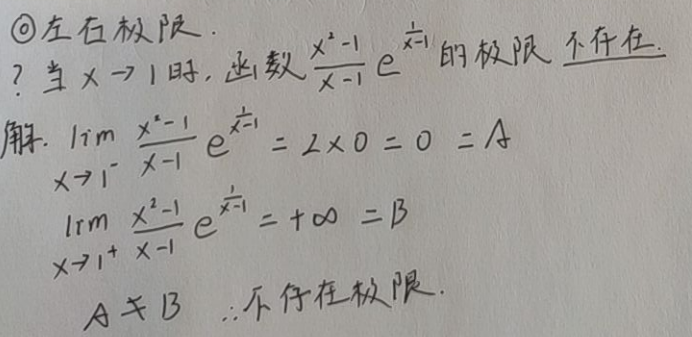 ◎左右极限.
? 当 x → 1 时, 函数 \frac{x²-1}{x-1} e^{\frac{1}{x-1}} 的极限 不存在.
解. lim_{x→1⁻} \frac{x²-1}{x-1} e^{\frac{1}{x-1}} = 2×0 = 0 = A
lim_{x→1⁺} \frac{x²-1}{x-1} e^{\frac{1}{x-1}} = +∞ = B
A ≠ B ∴不存在极限.